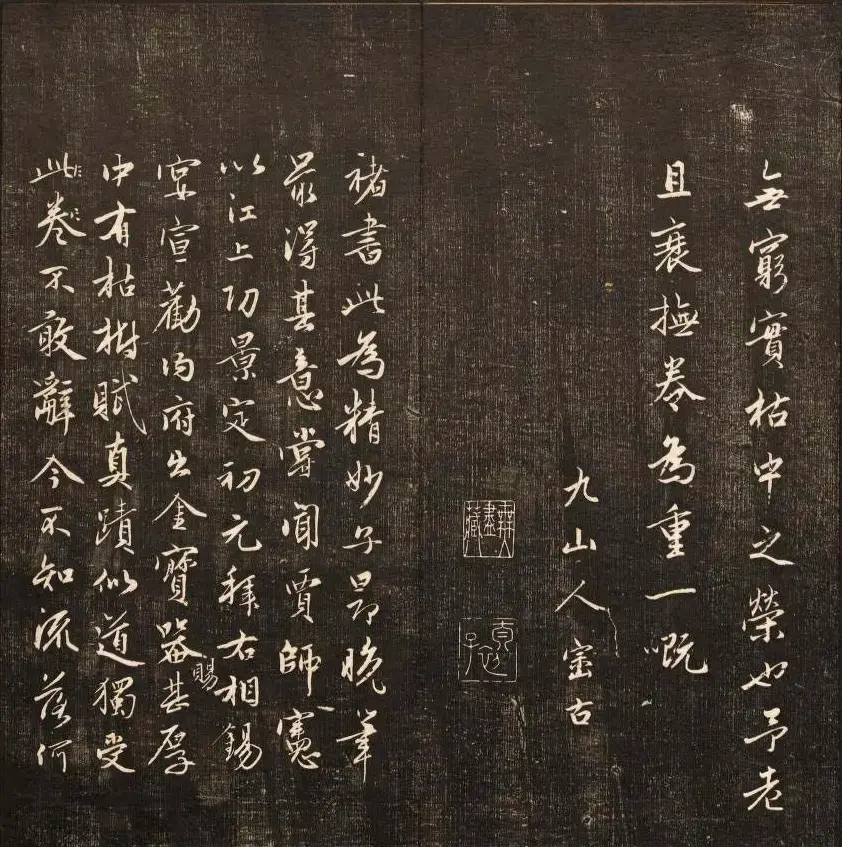 無窮實枯中之榮也予老
且衰撫卷為重一嘅
九山人古
褚書此為精妙子昂晚筆
最得其意嘗聞賈師憲
以江上功景定初元拜右相錫
宴宣勸內府出金寶器賜甚厚
中有枯樹賦真蹟似道獨受
此卷不敢辭今不知流落何